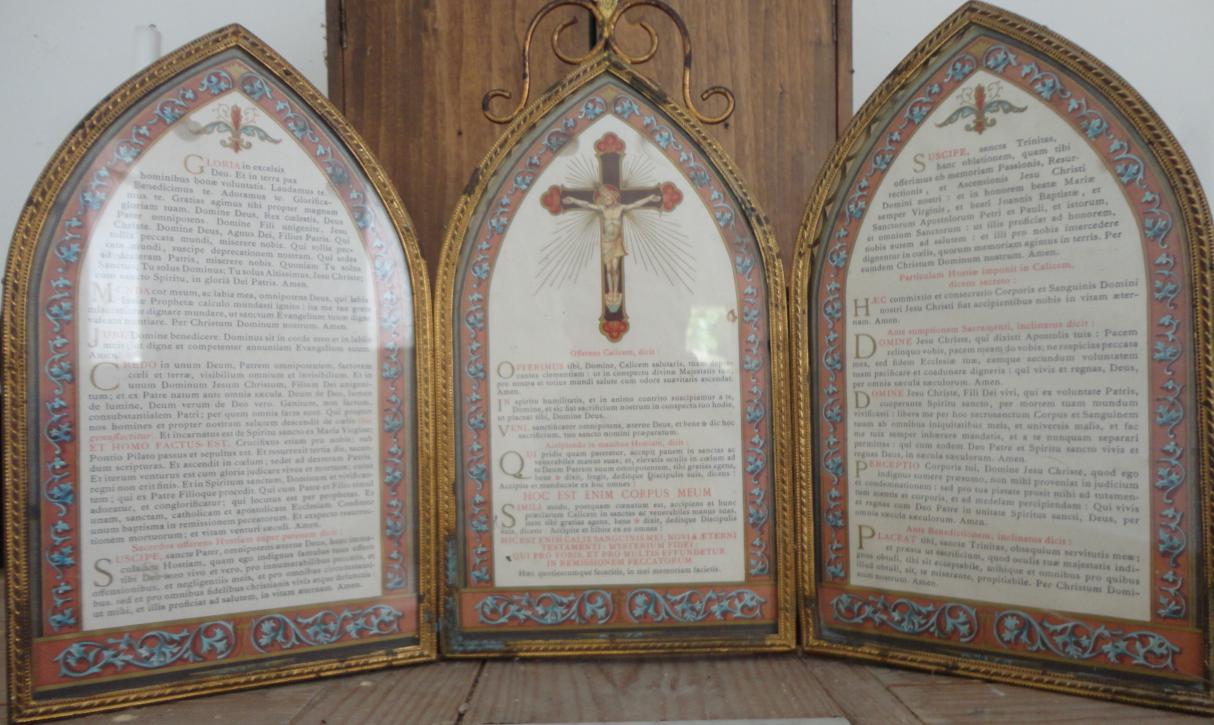 GLORIA in excelsis
Deo. Et in terra pax
hominibus bonæ voluntatis. Laudamus te.
Benedicimus te. Adoramus te. Glorifica-
mus te. Gratias agimus tibi propter magnam
gloriam tuam. Domine Deus, Rex cœlestis, Deus
Pater omnipotens. Domine Fili unigenite, Jesu
Christe. Domine Deus, Agnus Dei, Filius Patris. Qui
tollis peccata mundi, miserere nobis. Qui tollis pec-
cata mundi, suscipe deprecationem nostram. Qui sedes
ad dexteram Patris, miserere nobis. Quoniam Tu solus
Sanctus, Tu solus Dominus: Tu solus Altissimus, Jesu Christe;
cum sancto Spiritu, in gloriâ Dei Patris. Amen.
MUNDA cor meum, ac labia mea, omnipotens Deus, qui labia
Isaiæ Prophetæ calculo mundasti ignito: ita me tua grata
miseratione dignare mundare, ut sanctum Evangelium tuum digne
valeam nuntiare. Per Christum Dominum nostrum. Amen.
JUBE, Domine benedicere. Dominus sit in corde meo et in labiis
meis: ut digne et competenter annuntiem Evangelium suum.
Amen.
CREDO in unum Deum, Patrem omnipotentem, factorem
cœli et terræ, visibilium omnium et invisibilium. Et in
unum Dominum Jesum Christum, Filium Dei unigeni-
tum; et ex Patre natum ante omnia sæcula. Deum de Deo, lumen
de lumine, Deum verum de Deo vero. Genitum, non factum,
consubstantialem Patri; per quem omnia facta sunt. Qui propter
nos homines et propter nostram salutem descendit de cœlis (hic
genuflectitur). Et incarnatus est de Spiritu sancto ex Maria Virgine;
ET HOMO FACTUS EST. Crucifixus etiam pro nobis; sub
Pontio Pilato passus et sepultus est. Et resurrexit tertia die, secun-
dum scripturas. Et ascendit in cœlum; sedet ad dexteram Patris.
Et iterum venturus est cum gloria judicare vivos et mortuos; cujus
regni non erit finis. Et in Spiritum sanctum, Dominum et vivifican-
tem; qui ex Patre Filioque procedit. Qui cum Patre et Filio simul
adoratur, et conglorificatur; qui locutus est per prophetas. Et
unam, sanctam, catholicam et apostolicam Ecclesiam. Confiteor
unum baptisma in remissionem peccatorum. Et exspecto resurrec-
tionem mortuorum; et vitam venturi sæculi. Amen.
Sacerdos offerens Hostiam super patenam dicit:
SUSCIPE, sancte Pater, omnipotens æterne Deus, hanc imma-
culatam Hostiam, quam ego indignus famulus tuus offero
tibi Deo meo vivo et vero, pro innumerabilibus peccatis, et
offensionibus, et negligentiis meis, et pro omnibus circumstanti-
bus, sed et pro omnibus fidelibus christianis vivis atque defunctis:
ut mihi, et illis proficiat ad salutem, in vitam æternam. Amen.
Offerens Calicem, dicit:
OFFERIMUS tibi, Domine, Calicem salutaris, tuam depre-
cantes clementiam: ut in conspectu divinæ Majestatis tuæ,
pro nostra et totius mundi salute cum odore suavitatis ascendat.
Amen.
IN spiritu humilitatis, et in animo contrito suscipiamur a te,
Domine, et sic fiat sacrificium nostrum in conspectu tuo hodie,
ut placeat tibi, Domine Deus.
VENI, sanctificator omnipotens, æterne Deus, et bene ✠ dic hoc
sacrificium, tuo sancto nomini præparatum.
Accipiendo in manibus Hostiam, dicit:
QUI pridie quam pateretur, accepit panem in sanctas ac
venerabiles manus suas, et, elevatis oculis in cœlum ad
te Deum Patrem suum omnipotentem, tibi gratias agens,
bene ✠ dixit, fregit, deditque Discipulis suis, dicens:
Accipite et manducate ex hoc omnes:
HOC EST ENIM CORPUS MEUM
SIMILI modo, postquam cœnatum est, accipiens et hunc
præclarum Calicem in sanctas ac venerabiles manus suas,
item tibi gratias agens, bene ✠ dixit, deditque Discipulis
suis, dicens: Accipite et bibite ex eo omnes:
HIC EST ENIM CALIX SANGUINIS MEI, NOVI & ÆTERNI
TESTAMENTI: MYSTERIUM FIDEI:
QUI PRO VOBIS, ET PRO MULTIS EFFUNDETUR
IN REMISSIONEM PECCATORUM
Hæc quotiescumque feceritis, in mei memoriam facietis.
SUSCIPE, sancta Trinitas,
hanc oblationem, quam tibi
offerimus ob memoriam Passionis, Resur-
rectionis, et Ascensionis Jesu Christi
Domini nostri: et in honorem beatæ Mariæ
semper Virginis, et beati Joannis Baptistæ, et
Sanctorum Apostolorum Petri et Pauli, et istorum,
et omnium Sanctorum: ut illis proficiat ad honorem,
nobis autem ad salutem: et illi pro nobis intercedere
dignentur in cœlis, quorum memoriam agimus in terris. Per
eumdem Christum Dominum nostrum. Amen.
Particulam Hostiæ imponit in Calicem,
dicens secreto:
HÆC commixtio et consecratio Corporis et Sanguinis Domini
nostri Jesu Christi fiat accipientibus nobis in vitam æter-
nam. Amen.
Ante sumptionem Sacramenti, inclinatus dicit:
DOMINE Jesu Christe, qui dixisti Apostolis tuis: Pacem
relinquo vobis, pacem meam do vobis; ne respicias peccata
mea, sed fidem Ecclesiæ tuæ, eamque secundum voluntatem
tuam pacificare et coadunare digneris: qui vivis et regnas, Deus,
per omnia sæcula sæculorum. Amen.
DOMINE Jesu Christe, Fili Dei vivi, qui ex voluntate Patris,
cooperante Spiritu sancto, per mortem tuam mundum
vivificasti: libera me per hoc sacrosanctum Corpus et Sanguinem
tuum ab omnibus iniquitatibus meis, et universis malis, et fac
me tuis semper inhærere mandatis, et a te nunquam separari
permittas: qui cum eodem Deo Patre et Spiritu sancto vivis et
regnas Deus, in sæcula sæculorum. Amen.
PERCEPTIO Corporis tui, Domine Jesu Christe, quod ego
indignus sumere præsumo, non mihi proveniat in judicium
et condemnationem: sed pro tua pietate prosit mihi ad tutamen-
tum mentis et corporis, et ad medelam percipiendam: Qui vivis
et regnas cum Deo Patre in unitate Spiritus sancti, Deus, per
omnia sæcula sæculorum. Amen.
Ante Benedictionem, inclinatus dicit:
PLACEAT tibi, sancta Trinitas, obsequium servitutis meæ:
et præsta ut sacrificium, quod oculis tuæ majestatis indi-
gnus obtuli, tibi sit acceptabile, mihique et omnibus pro quibus
illud obtuli, sit, te miserante, propitiabile. Per Christum Domi-
num nostrum. Amen.